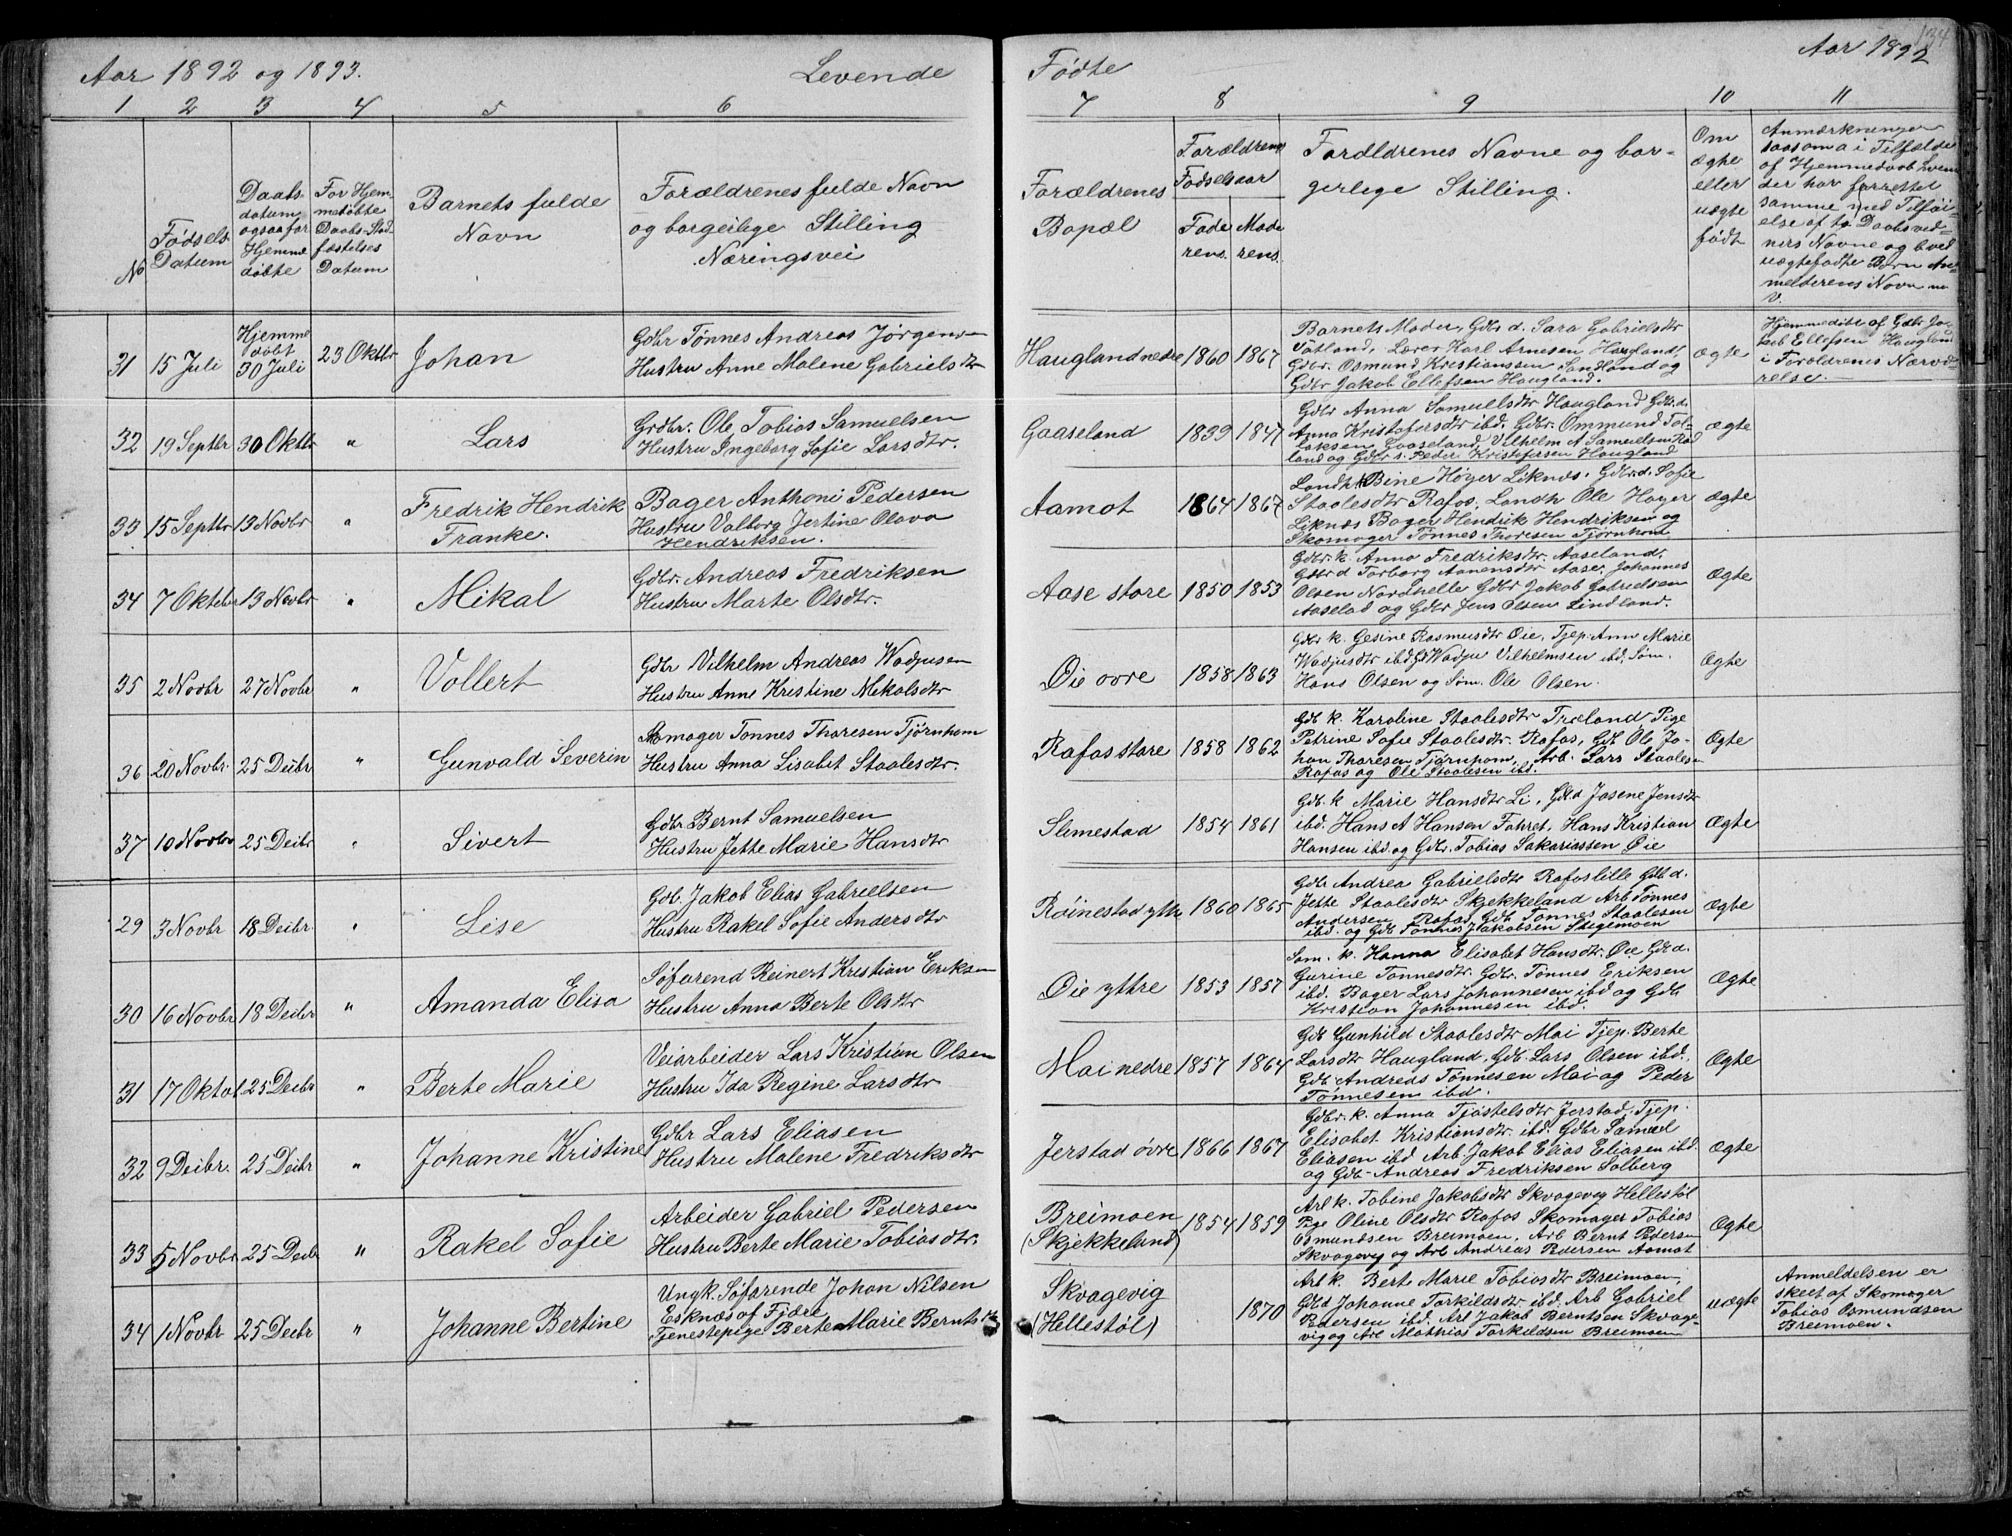 Aar 1892 og 1893. Levende Fødte Aar 1892
134
1 2 3 4 5 6 7 8 9 10 11
No
Fødsels Datum
Daabs-
datum
ogsaa for
Hjemme
døbte
For Hjem-
medøbte
Daabs-Stad
fæstelses
Datum
Barnets fulde
Navn
Forældrenes fulde Navn
og borgerlige Stilling
Næringsvei
Forældrenes
Bopæl
Forældrenes
Fødselsaar
Fade Mode
rens. rens.
Forældrenes Navne og bor-
gerlige Stilling.
Om
ægte
eller
uægte
født
Anmærkninger
saasom a i Tilfælde
af Hjemmedaab hvem
der har forrettet
samme med Tilføi-
else af to Daabsvid-
ners Navne og b ved
uægtefødte Børn An-
melderens Navn m
v.
31 15 Juli
Hjemme
døbt
30 Juli
23 Oktbr
Johan
Gdbr Tønnes Andreas Jørgensen
Hustru Anne Malene Gabrielsdtr
Haugland nedre 1860 1867
Barnets Moder, Gdb d. Sara Gabrielsdtr
Vatland, Lærer Karl Arnesen Haugland,
Gdbr. Osmund Kristianssen Sandland og
Gdbr Jakob Ellefsen Haugland.
ægte
Hjemmedøbt af Gdbr Ja-
kob Ellefsen Haugland
i Forældrenes Nærvæ-
relse.
32 19 Septbr 30 Oktbr "
Lars
Grdbr. Ole Tobias Samuelsen
Hustru Ingeborg Sofie Larsdtr.
Gaaseland 1839 1847
Gdbr Anna Samuelsdtr Haugland Gdb.d.
Anna Kristofersdtr ibd. Gdbr. Ommund Tol-
laksen Gaaseland, Vilhelm A Samuelsen Rød
land og Gdbr s. Peder Kristofersen Haugland
ægte
33 15 Septbr 13 Novbr "
Fredrik Hendrik
Franke.
Bager Anthoni Pedersen
Hustru Valborg Jertine Olava
Hendriksen.
Aamot 1864 1867
Landh k Bine Høyer Liknes. Gdbr.d. Sofie
Staalesdtr Rafos, Landh Ole Høyer
Liknes Bager Hendrik Hendriksen og
Skomager Tønnes Thoresen Tjørnhom
Ægte
34 7 Oktober 13 Novbr "
Mikal
Gdbr. Andreas Fredriksen
Hustru Marte Olsdtr.
Aase store 1850 1853
Gdbr. k. Anna Fredriksdtr. Aaseland.
Gdbr d Torborg Aanensdtr Aase, Johannes
Olsen Nordhelle Gdbr Jakob Gabrielsen
Aaselad og Gdbr Jens Olsen Lindland.
Ægte
35 2 Novbr 27 Novbr "
Vollert
Gdbr Vilhelm Andreas Wadjusen
Hustru Anne Kristine Mikalsdtr
Øie øvre 1858 1863
Gdbr k. Gesine Rasmusdtr Øie, Tjep. Ann Marie
Wadjusdtr ibd. Gd Wadju Vilhelmsen ibd. Søm.
Hans Olsen og Søm. Ole Olsen.
Ægte
36 20 Novbr. 25 Decbr "
Gunvald Severin
Skomager Tønnes Thoresen Tjørnhom
Hustru Anna Lisabet Staalesdtr.
Rafos store 1858 1862
Gdb k. Karoline Staalesdtr Træland Pige
Petrine Sofie Staalesdtr. Rafos, Gdb Ole Jo-
han Thoresen Tjørnhom, Arb. Lars Staales-
Rafos og Ole Staalesen ibd.
Ægte
37 10 Novbr 25 Decbr "
Sivert
Gdbr Bernt Samuelsen
Hustru Jette Marie Hansdtr
Slimestad 1854 1861
Gdb. k Marie Hansdtr Li, Gdb.d Josene Jensdtr
ibd. Hans A Hansen Fahret, Hans Kristian
Hansen ibd. og Gdbr. Tobias Sakariassen Øie
Ægte
29 3 Novbr 18 Decbr. "
Lise
Gdb. Jakob Elias Gabrielsen
Hustru Rakel Sofie Andersdtr
Røinestad ytre 1860 1865
Gdbr Andrea Gabrielsdtr Rafos lille Gdb d.
Jette Staalesdtr Skjekkeland Arb Tønnes
Andersen Rafos, Gdb Tønnes Staalesen
ibd. og Gdb Tønnes Jakobsen Stegemoen
Ægte
30 16 Novbr 18 Decbr "
Amanda Elisa
Søfarend Reinert Kristian Eriksen
Hustru Anna Berte Olsdtr
Øie ytre 1853 1857
Søm. k. Hanna Elisabet Hansdtr. Øie Gdb d.
Gurine Tønnesdtr. Gdbr. Tønnes Eriksen
ibd. Bager Lars Johannesen ibd og Gdb
Kristian Johannesen ibd.
Ægte
31 17 Oktob 25 Decbr "
Berte Marie
Veiarbeider Lars Kristian Olsen
Hustru Ida Regine Larsdtr
Moi nedre 1857 1864
Gdb Gunhild Staalesdtr Moi Tjep. Berte
Larsdtr Haugland, Gdb. Lars Olsen ibd.
Gdb Andreas Tønnesen Moi og Peder
Tønnesen ibd.
Ægte
32 9 Decbr. 25 Decbr "
Johanne Kristine
Gdbr Lars Eliasen
Hustru Malene Fredriksdtr
Jerstad øvre 1866 1867
Gdbr. k. Anna Tjøstelsdtr Jerstad, Tjep.
Elisabet Kristiansdtr. ibd. Gdbr Samuel
Eliasen ibd Arb. Jakob Elias Eliasen ibd.
og Gdb Andreas Fredriksen Solberg
Ægte
33 5 Novbr 25 Decbr "
Rakel Sofie
Arbeider Gabriel Pedersen
Hustru Berte Marie Tobiasdtr.
Breimoen
(Skjekkeland) 1854 1859
Arb k. Tobine Jakobsdtr Skvagevig Hellestøl
Pige Oline Olsdtr Rafos Skomager Tobias
Osmundsen Breimoen, Arb Bernt Pedersen
Skvagevig og Arb Andreas Pedersen Aamot
Ægte
34 1 Novbr 25 Decbr "
Johanne Bertine
Ungk. Søfarende Johan Nilsen
Esknæs af Fjære
Tjenestepige Berte Marie Berntsdtr
Skvagevig
(Hellestøl) 1870
Arb k. Berte Marie Tobiasdtr Breimoen,
Gdb.d Johanne Torkildsdtr ibd. Arb Gabriel
Pedersen ibd. Arb Jakob Berntsen Skvage-
vig og Arb Mathias Torkildsen Breimoen
uægte
Anmeldelsen er
skeet af Skomager
Tobias Osmundsen
Breimoen.